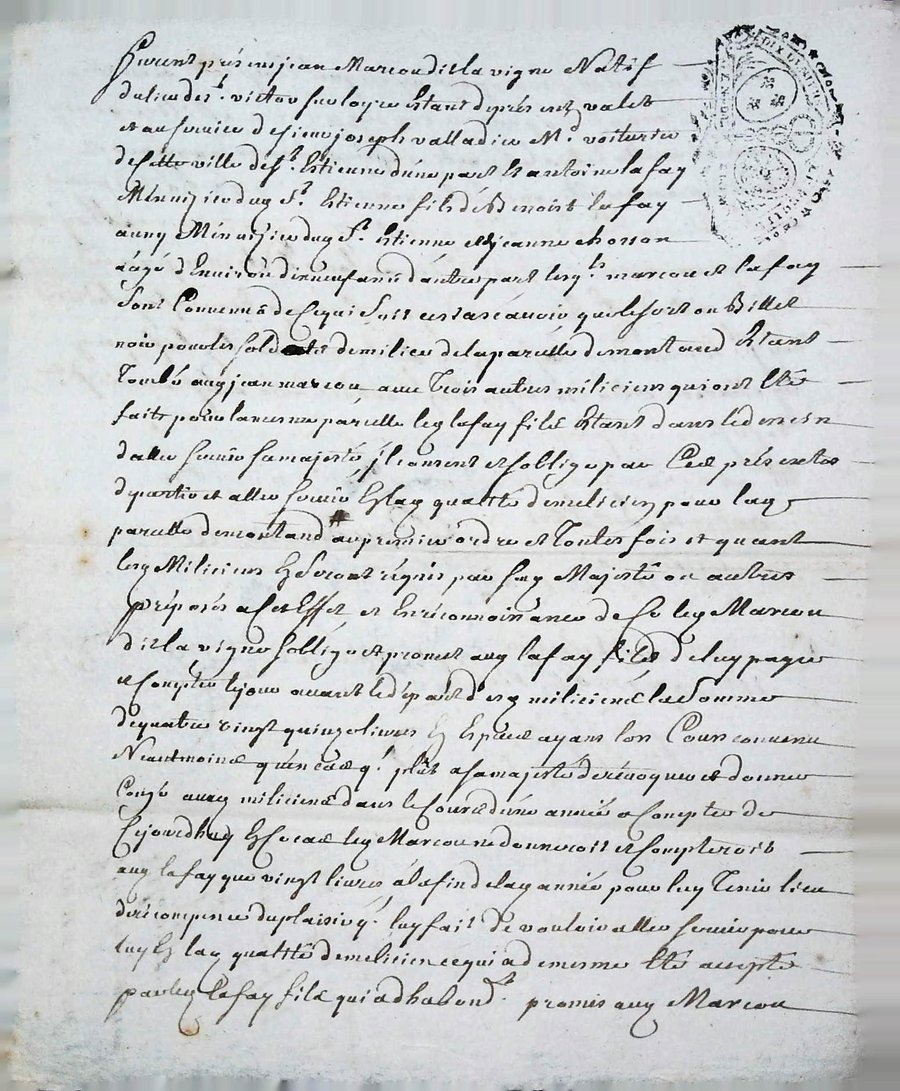 Furent présens jean Marcou dit la vigne Natif
du lieu de st. victor sur loyre Etant de présent valet
et au service de sieur joseph valladier Md. voiturier
de cette ville de st. Etienne d'une part Et antoine lafay
Menuizier dud st. Etienne fils de Benoist lafay
aussy Menuizier dud st. Etienne et de jeanne chosson
aagé d'Environ dixneuf ans d'autre part lesqls marcou et lafay
sont Convenus de ce qui suit cest ascavoir que le sort ou Billet
noir pour les soldats de milice de la parelle de montaud Etant
Tombé aud jean marcou avec Trois autres miliciens qui ont Eté
faits pour la mesme parelle led lafay fils Etant dans le dessein
d'aller servir sa majesté, jl consent et soblige par Ces présentes
de partir et aller servir En lad quallité de milicien pour lad
parelle de montaud au premier ordre et Toutes fois et quant
lesd Miliciens En seront réquis par sad Majesté ou autres
préposés a Cet Effet et En réconnoissance de Ce led Marcou
dit la vigne soblige et promet aud lafay fils de luy payer
et Compter le jour avant le départ desd miliciens la Somme
de quatre vingt quinze livres En Espece ayant lors Cours convenu
Neantmoins qu'en cas q. plût a sa majesté de révoquer et donner
Congé auxd miliciens dans le Cours d'une année a Compter de
Cejourdhuy En ce cas led Marcou ne donneroit et Compteroit
aud lafay que vingt livres à la fin de lad année pour luy Tenir lieu
de récompense du plaisir q. luy fait de vouloir aller servir pour
luy En lad quallité de milicien ce qui a de mesme Eté accepté
par led lafay fils qui a d'habondt. promis aud Marcou